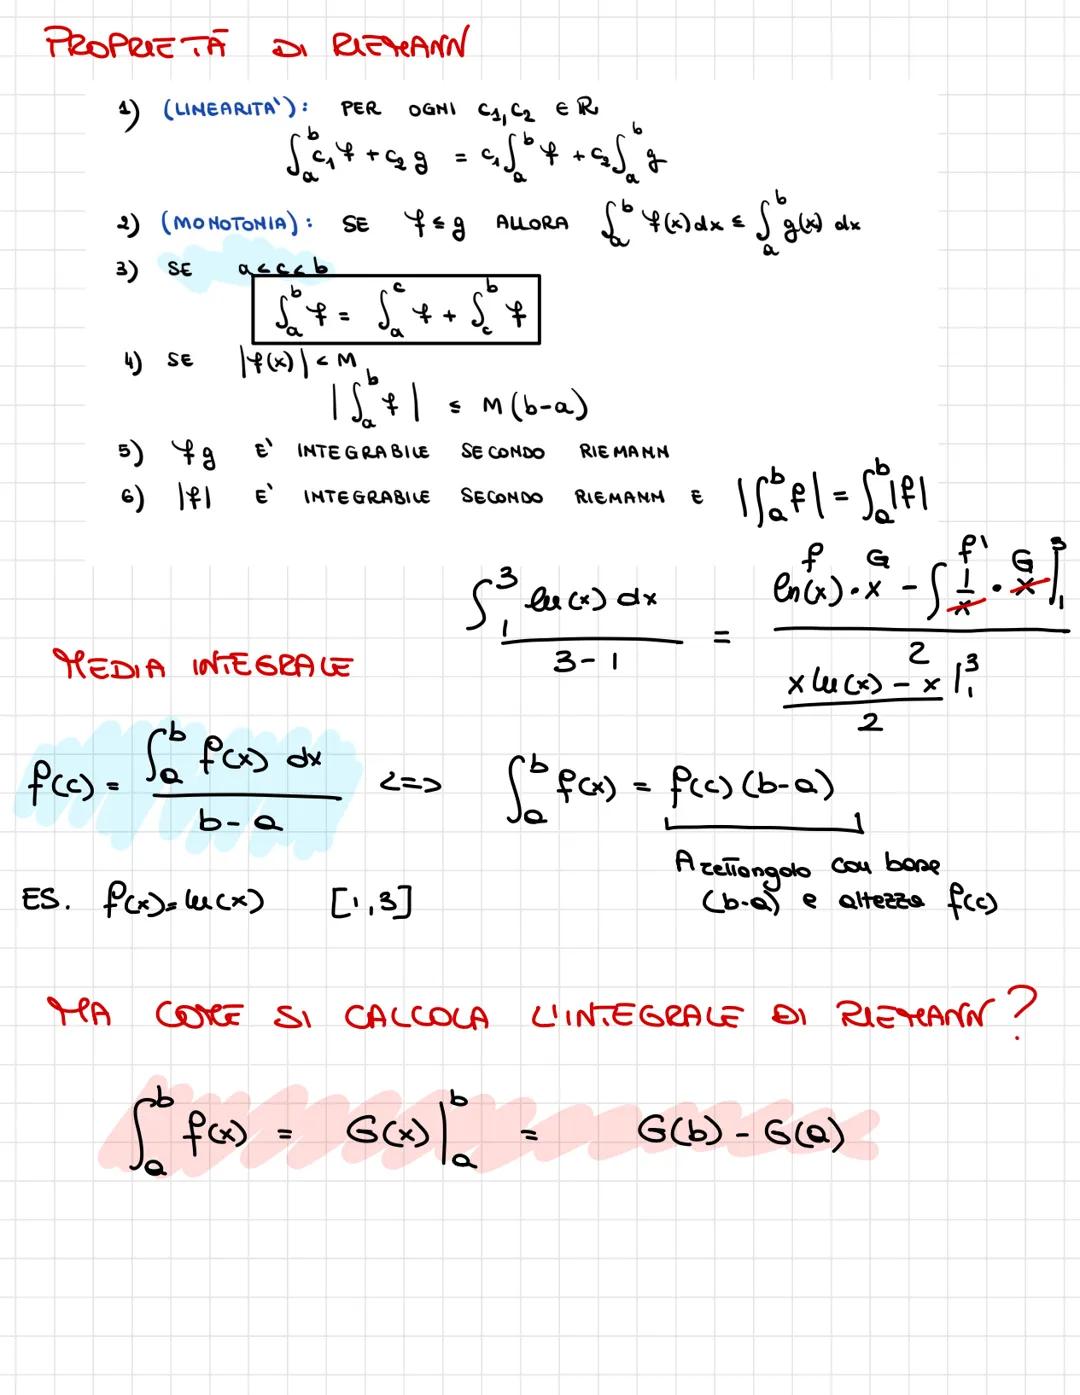 PROPRIETÀ DI RIEMANN
1) (LINEARITA'): PER OGNI c₁, c₂ ∈ ℝ
∫ₐᵇ c₁f + c₂g = c₁∫ₐᵇ f + c₂∫ₐᵇ g
2) (MONOTONIA): SE f ≤ g ALLORA ∫ₐᵇ f(x)dx ≤ ∫ₐᵇ g(x) dx
3) SE a<c<b
∫ₐᵇ f = ∫ₐᶜ f + ∫꜀ᵇ f
4) SE |f(x)| < M
|∫ₐᵇ f| ≤ M(b-a)
5) fg E' INTEGRABILE SECONDO RIEMANN
6) |f| E' INTEGRABILE SECONDO RIEMANN E |∫ₐᵇ f| = ∫ₐᵇ |f|
f G f' G
∫₁³ ln(x) dx / 3-1 = ln(x)·x - ∫ 1/x · x]₁³ / 2
x ln(x) - x |₁³ / 2
MEDIA INTEGRALE
f(c) = ∫ₐᵇ f(x) dx / b-a <=> ∫ₐᵇ f(x) = f(c)(b-a)
A rettangolo con base
(b-a) e altezza f(c)
ES. f(x)=ln(x) [1,3]
MA COME SI CALCOLA L'INTEGRALE DI RIEMANN?
∫ₐᵇ f(x) = G(x)|ₐᵇ = G(b) - G(a)